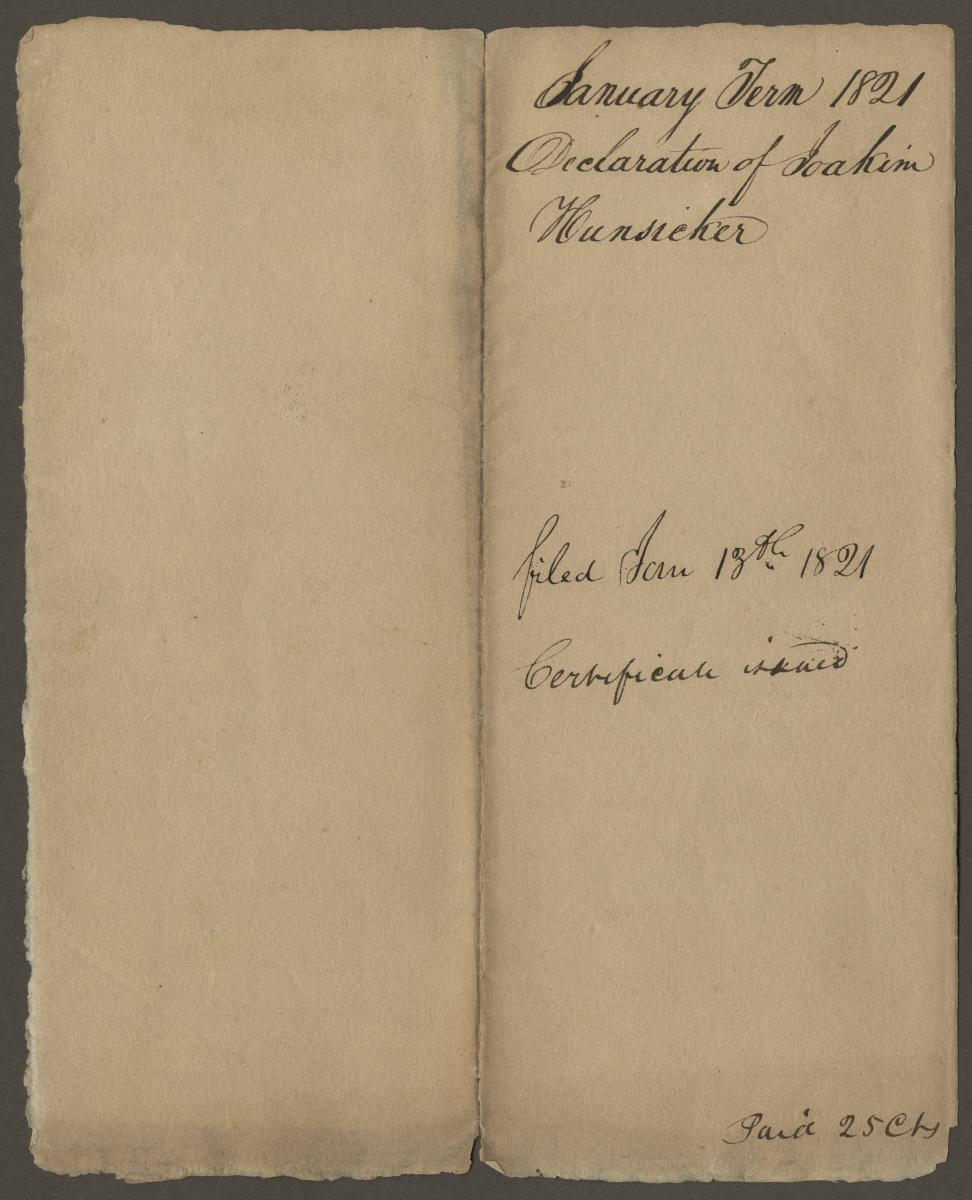 January Term 1821
Declaration of Joakim
Hunsicker
filed Jan 13th 1821
Certificate issued
Paid 25 Cts